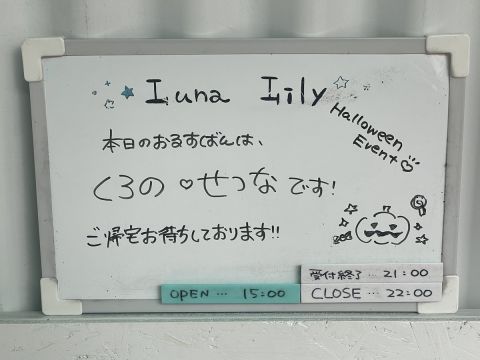 Luna Lily
Halloween
Event
本日のおるすばんは、
くろの♡せつなです!
ご帰宅お待ちしております!!
受付終了…21:00
OPEN…15:00
CLOSE…22:00